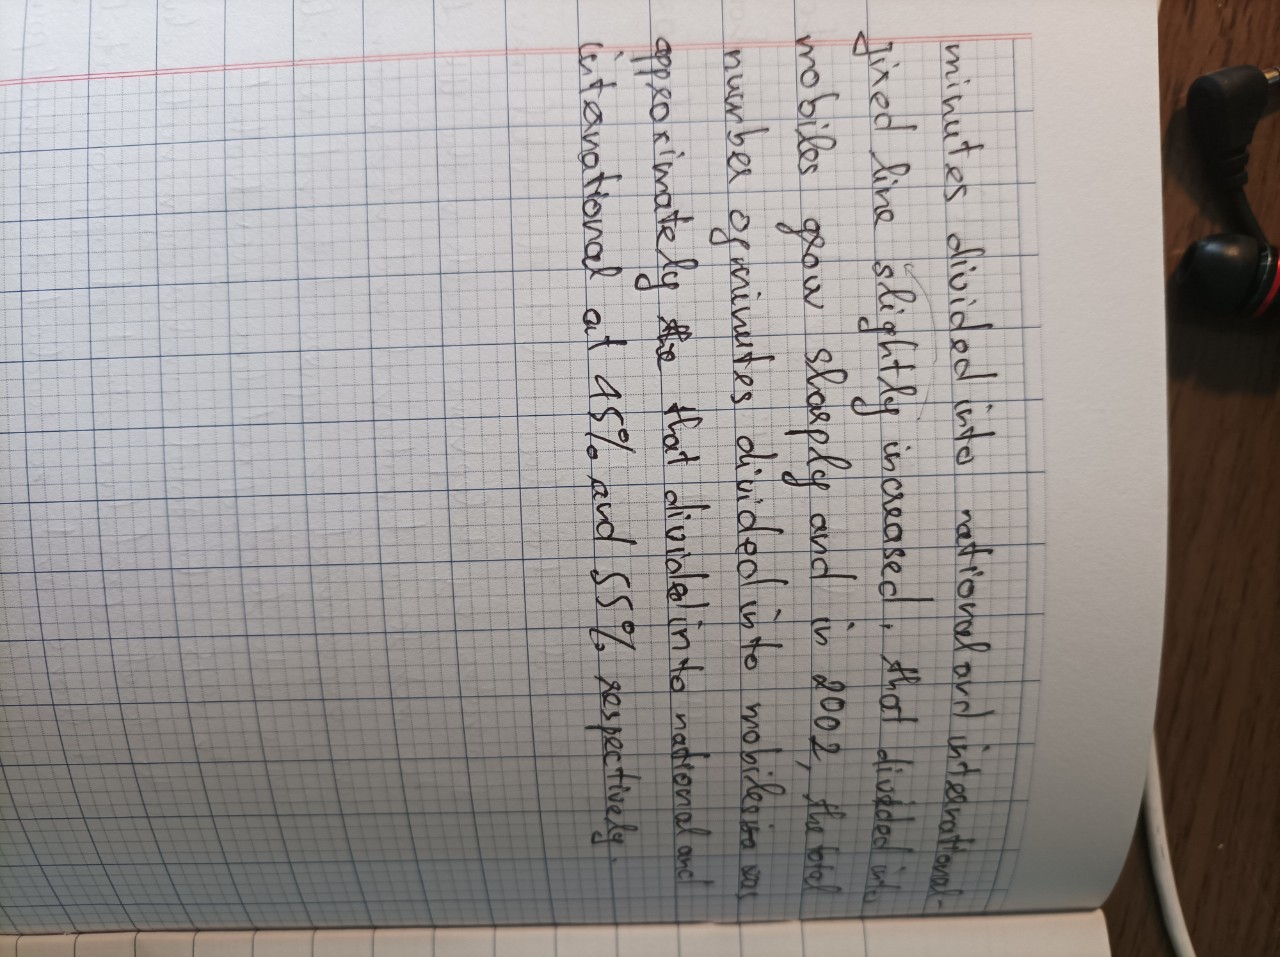 minutes divided into national and international-
fixed line slightly increased, that divided into
mobiles grow sharply and in 2002, the total
number of minutes divided into mobiles was
approximately that divided into national and
international at 45% and 55% respectively.